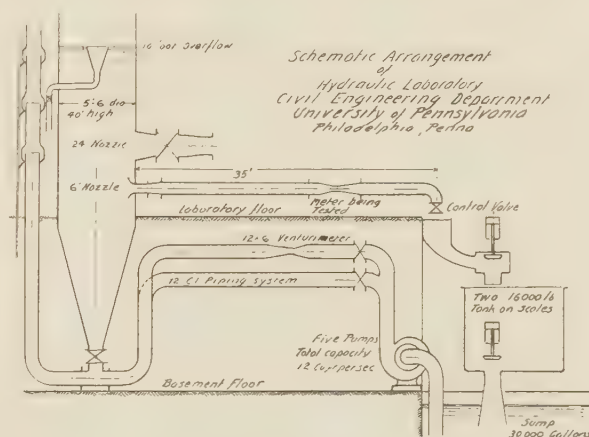 Schematic Arrangement
of
Hydraulic Laboratory
Civil Engineering Department
University of Pennsylvania
Philadelphia, Penna
overflow
5'-6 dia
40' high
24 Nozzle
35'
6" Nozzle
meter being
Tested
Laboratory floor
Control Valve
12×6 Venturimeter
12 CI Piping system
Two 16000 lb
Tank on scales
Five Pumps
Total capacity
12 Cu ft per sec
Basement Floor
Sump
30000 Gallons